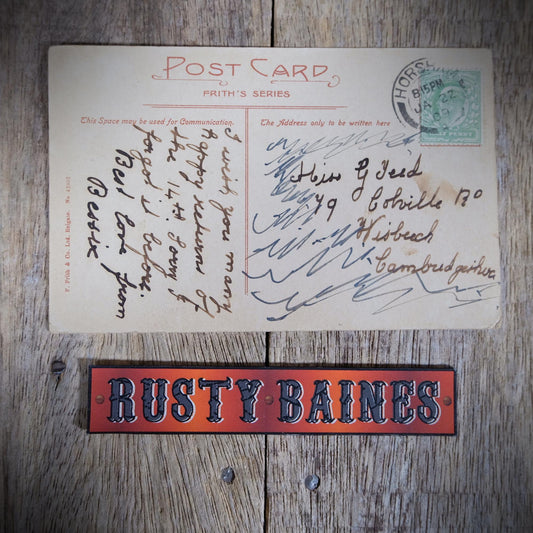 POST CARD
FRITH'S SERIES
This Space may be used for Communication.
The Address only to be written here
HORSH
8.15PM
JA 22
PENNY
I wish you many
happy returns of
the 14th Sorry I
forgot it before.
Best love from
Bessie
Miss G Teed
79 Colville Rd
Wisbech
Cambridgeshire
F. Frith & Co. Ltd., Reigate. No.
RUSTY BAINES